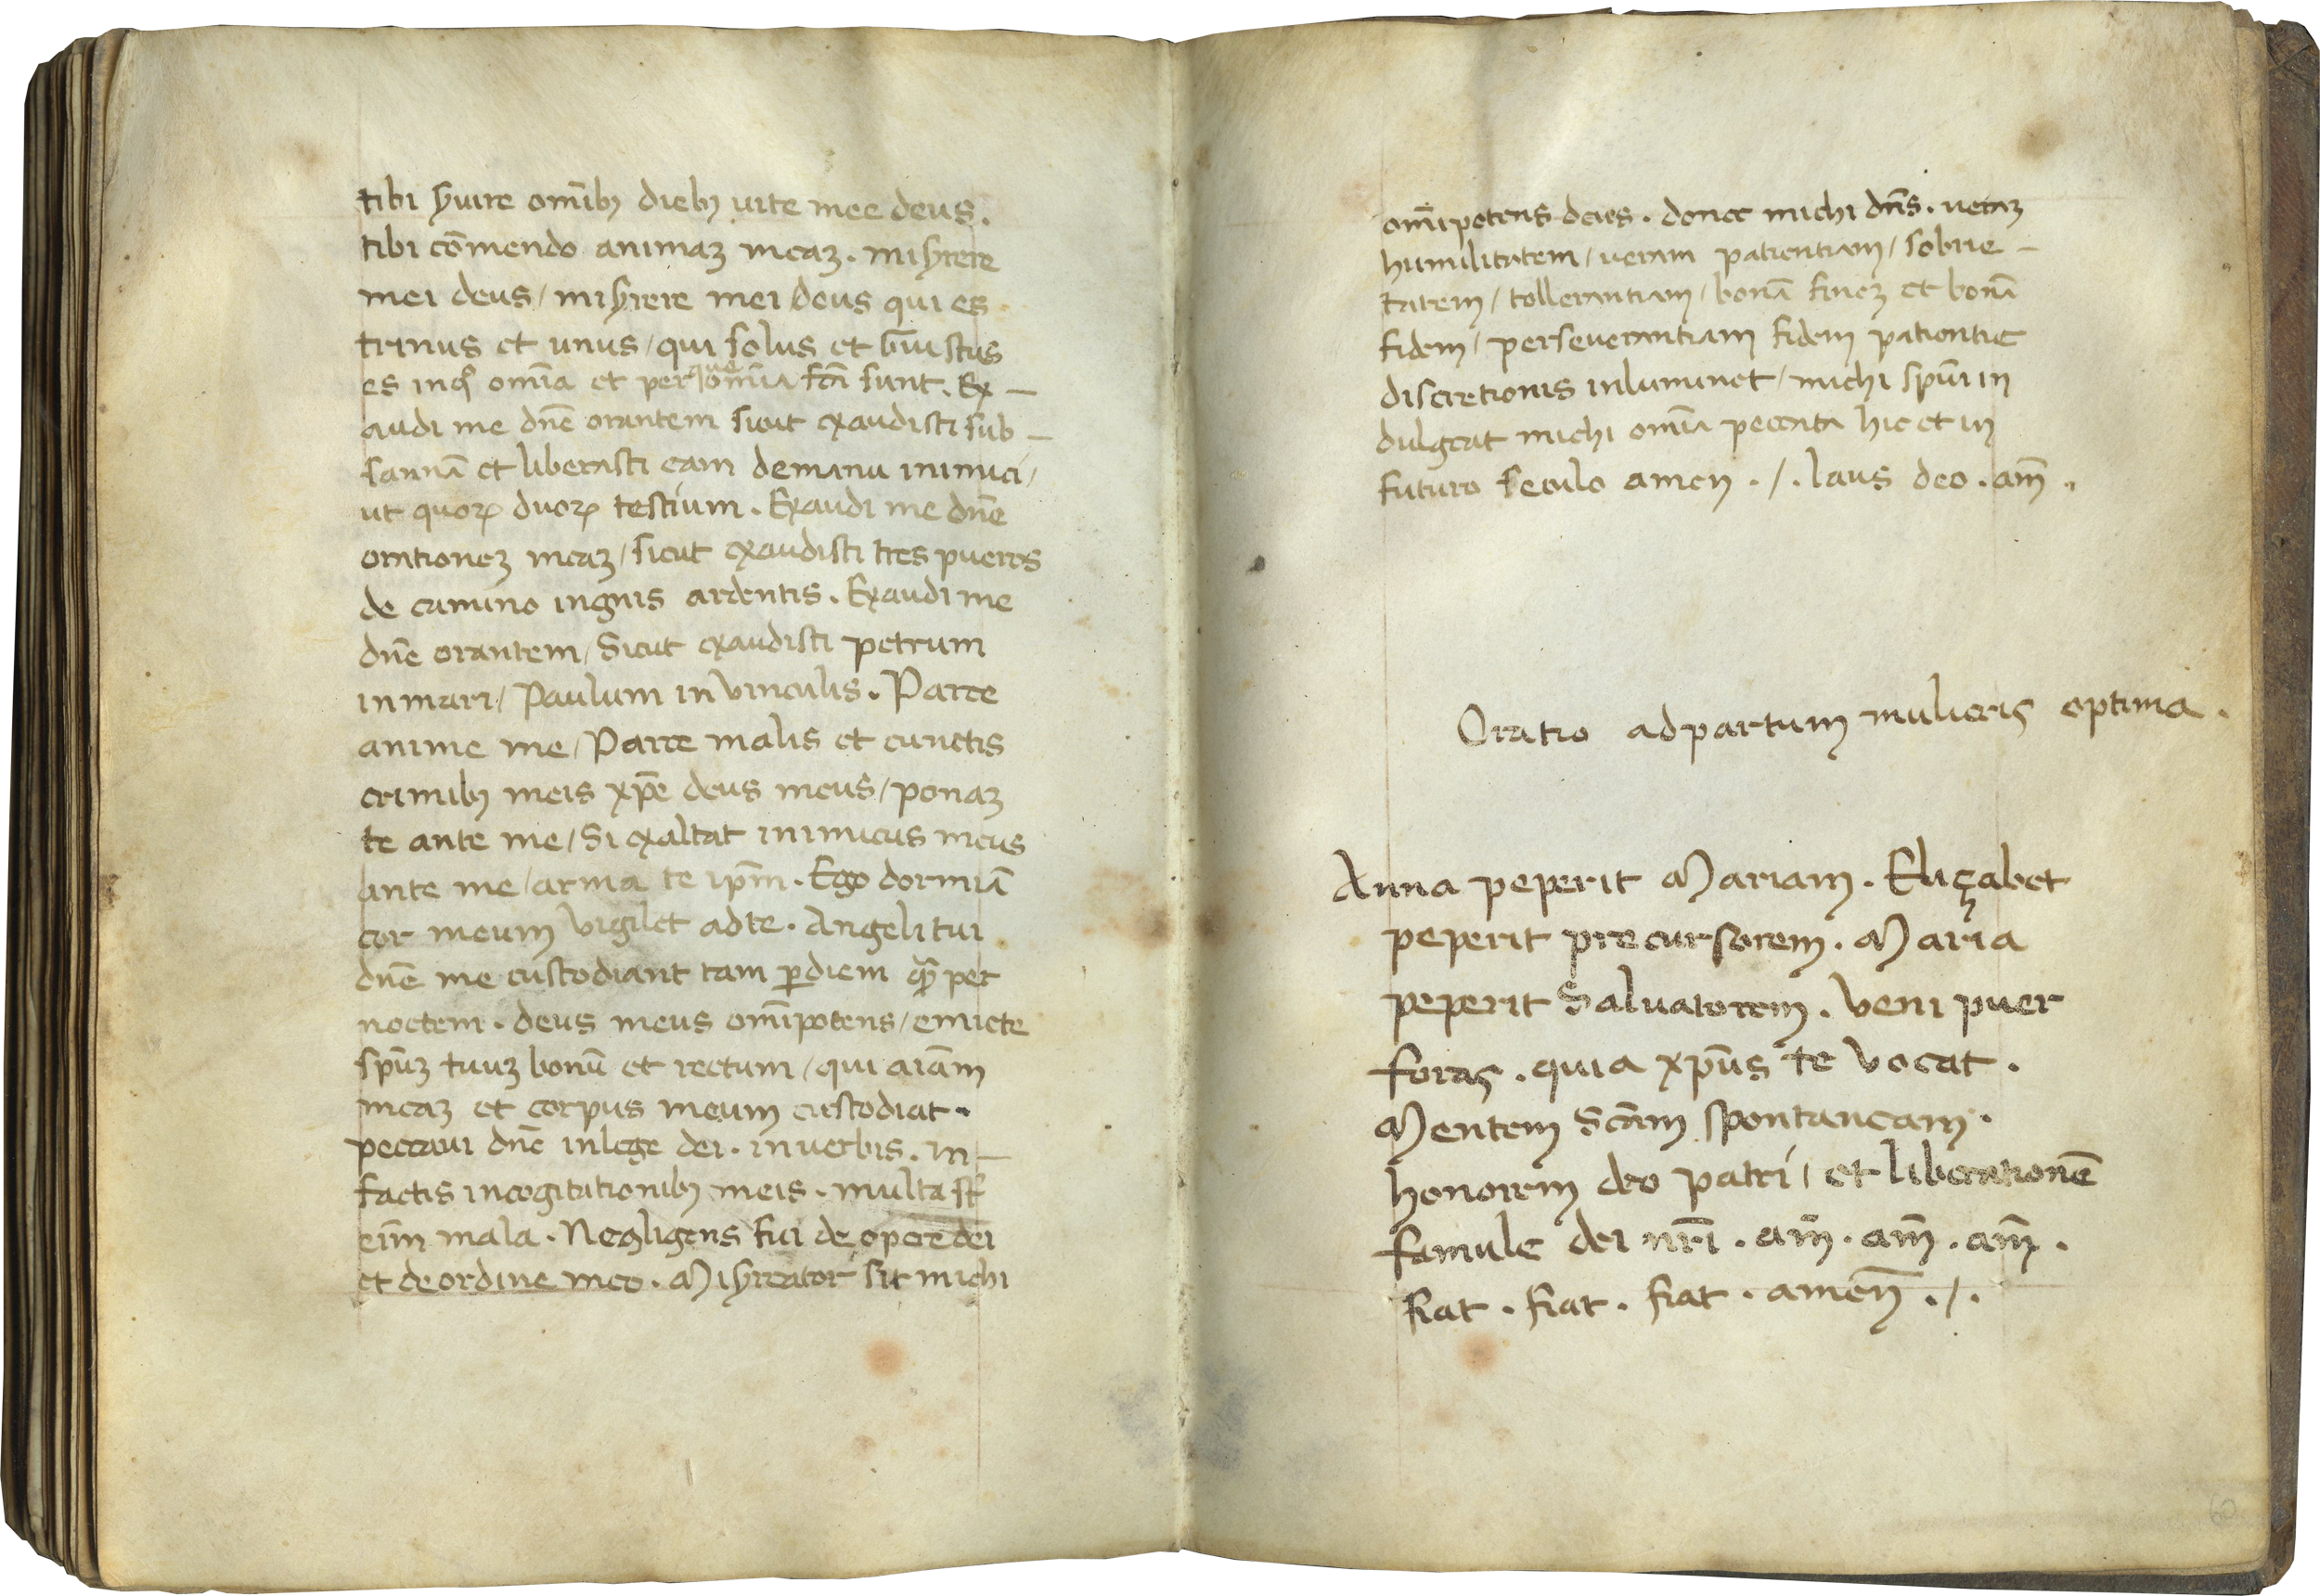 tibi s̱uire om̄ibꝫ diebꝫ uite mee deus.
tibi cōmendo animaꝫ meaꝫ. misẏrere
mei deus / misẏrere mei deus qui es
trinus et unus / qui solus et iustus
es in q̊ om̄ia et per que om̄ia fc̄a sunt. Ex —
audi me dn̄e orantem sicut exaudisti sub —
sannā et liberasti eam demanu inimici /
ut quoꝝ duoꝝ testium. Exaudi me dn̄e
orationeꝫ meaꝫ / sicut exaudisti tres pueros
de camino ingnis ardentis. Exaudi me
dn̄e orantem / Sicut exaudisti petrum
inmari / Paulum in vinculis. Parce
anime me / Parce malis et cunctis
crimibꝫ meis xp̄e deus meus / ponaꝫ
te ante me / Si exaltat inimicus meus
ante me / arma te ip̄m. Ego dormiā
cor meum vigilet adte. Angeli tui
dn̄e me custodiant tam ꝑdiem qꝫ per
noctem. deus meus om̄ipotens / emicte
sp̄uꝫ tuuꝫ bonū et rectum / qui aīam
meaꝫ et corpus meum custodiat.
peccaui dn̄e inlege dei. inuerbis. in —
factis incogitationibꝫ meis. multa st̄
eīm mala. Negligens fui de opere dei
et deordine meo. Misẏreator sit michi
om̄ipotens deus. donet michi dn̄s. ueraꝫ
humilitatem / ueram patientiam / sobrie —
tatem / tollerantiam / bonā fineꝫ et bonā
fidem / perseuerantiam fidem patientie
discretionis inluminet / michi sp̄ui in
dulgeat michi om̄ia peccata hic et in
futuro seculo amen ./. laus deo. am̄.
Oratio adpartum mulieris optima.
Anna peperit Mariam. Eliçabet
peperit precursorem. Maria
peperit Saluatorem. Veni puer
foras. quia xp̄us te vocat.
Mentem Sc̄am spontaneam.
honorem deo patri / et liberationē
famule dei nr̄i. am̄. am̄. am̄.
fiat. fiat. fiat. amen̄ ./.
60